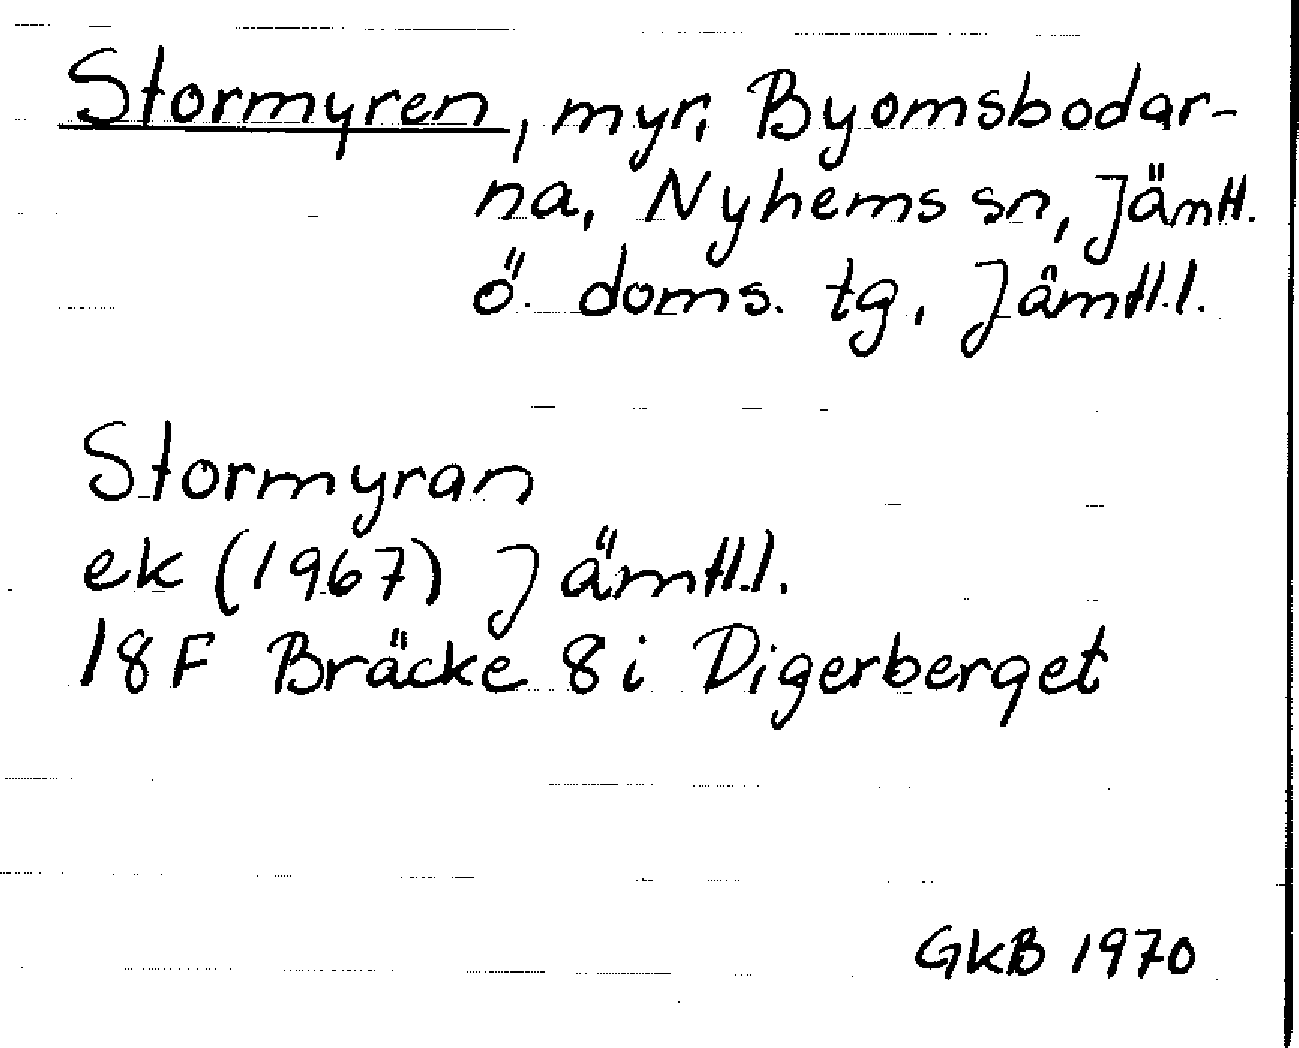 Stormyren, myr, Byomsbodar-
na, Nyhems sn, Jämtl.
ö. doms. tg, Jämtl.l.
Stormyran
ek (1967) Jämtl.l.
18F Bräcke 8i Digerberget
GKB 1970